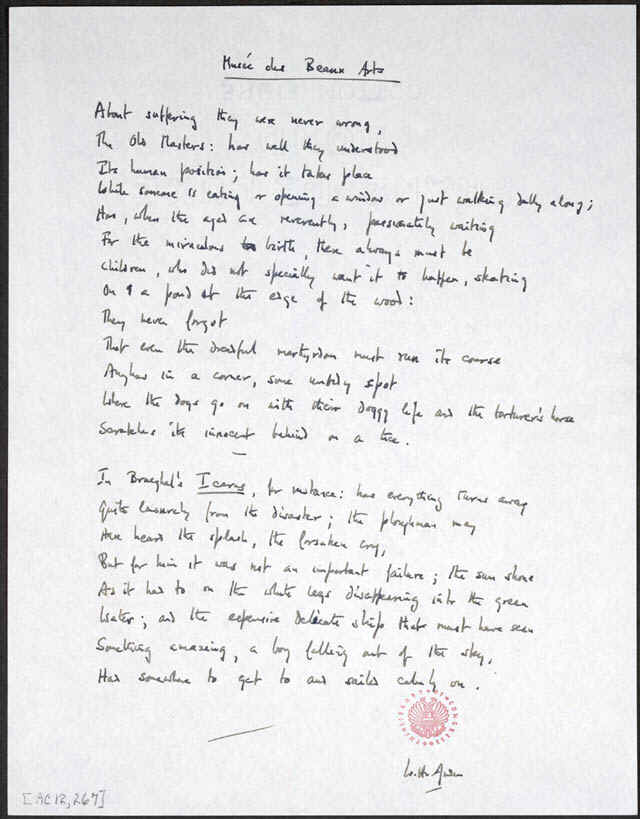 Musée des Beaux Arts
About suffering they were never wrong,
The Old Masters: how well they understood
Its human position; how it takes place
While someone is eating or opening a window or just walking dully along;
How, when the aged are reverently, passionately waiting
For the miraculous birth, there always must be
Children, who did not specially want it to happen, skating
On a pond at the edge of the wood:
They never forgot
That even the dreadful martyrdom must run its course
Anyhow in a corner, some untidy spot
Where the dogs go on with their doggy life and the torturer's horse
Scratches its innocent behind on a tree.
In Brueghel's Icarus, for instance: how everything turns away
Quite leisurely from the disaster; the ploughman may
Have heard the splash, the forsaken cry,
But for him it was not an important failure; the sun shone
As it had to on the white legs disappearing into the green
Water; and the expensive delicate ship that must have seen
Something amazing, a boy falling out of the sky,
Had somewhere to get to and sailed calmly on.
W.H. Auden
[AC12,267]